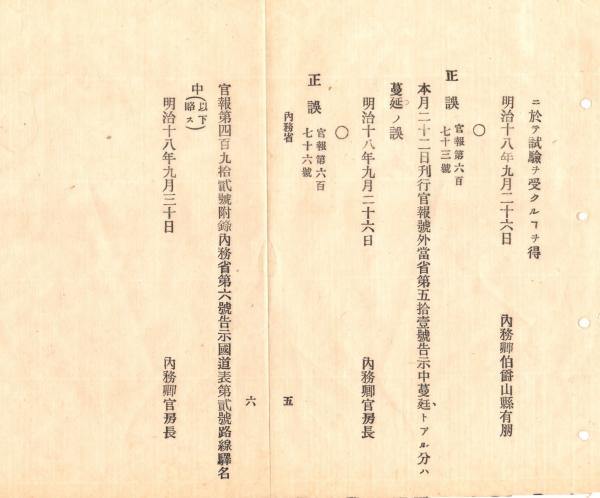 ニ於テ試驗ヲ受クルヿヲ得
明治十八年九月二十六日
內務卿伯爵山縣有朋
〇
正誤 官報第六百七十三號
本月二十二日刊行官報號外當省第五拾壹號告示中蔓廷、トアル分ハ
蔓延ノ誤
明治十八年九月二十六日
內務卿官房長
〇
正誤 官報第六百七十六號
內務省
五
六
官報第四百九拾貳號附錄內務省第六號告示國道表第貳號路線驛名
中(以下略ス)
明治十八年九月三十日
內務卿官房長